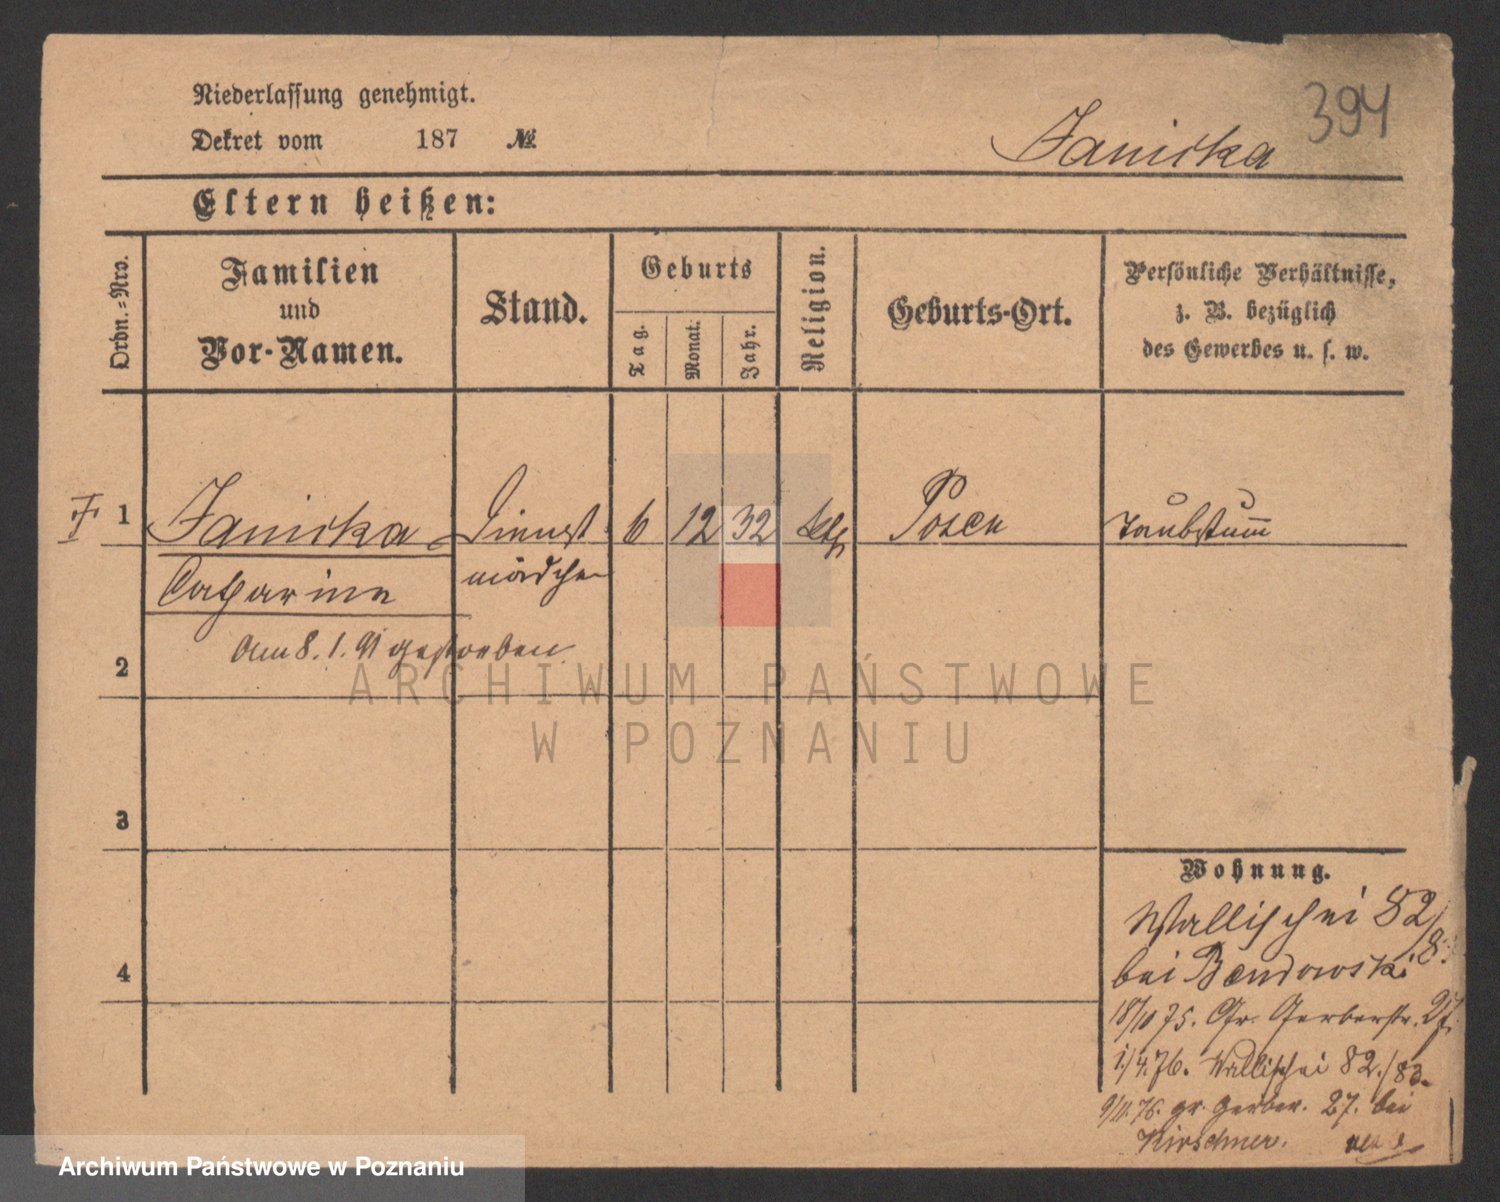 394
Niederlassung genehmigt.
Dekret vom 187 №
Janicka
Eltern heißen:
Ordn.-Nro.
Familien
und
Vor-Namen.
Stand.
Geburts
Tag.
Monat.
Jahr.
Religion.
Geburts-Ort.
Persönliche Verhältnisse,
z. B. bezüglich
des Gewerbes u. s. w.
1 Janicka Dienst 6 12 32 kth Posen Taubstumm
Catharina mädchen
am 8. 1. 91 gestorben.
2
3
4
Wohnung.
Wallischei 82/8
bei Bendowski
18/10 75. Gr. Gerberstr. 27.
1/4. 76. Wallischei 82./83.
9/11. 76. gr. Gerber. 27. bei
Kirschner.
ARCHIWUM PAŃSTWOWE
W POZNANIU
Archiwum Państwowe w Poznaniu